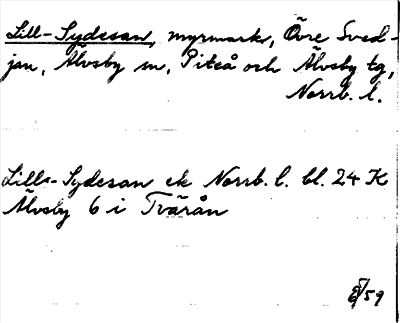 Lill-Sydesan, myrmark, Övre Svad-
jan, Älvsby sn, Piteå och Älvsby tg,
Norrb. l.
Lill-Sydesan ek Norrb. l. bl. 24 K
Älvsby 6 i Tvärån
/59